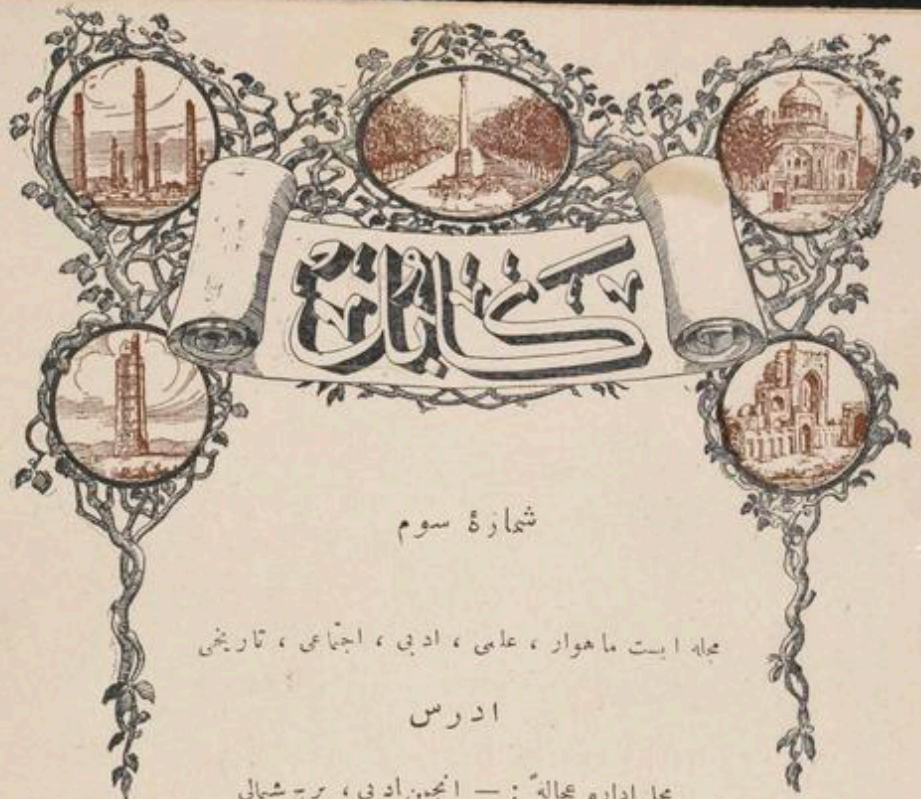 کابل
شمارۀ سوم
مجله ایست ماهوار ، علمی ، ادبی ، اجتماعی ، تاریخی
ادرس
محل اداره : — انجمن ادبی ، برج شمالی